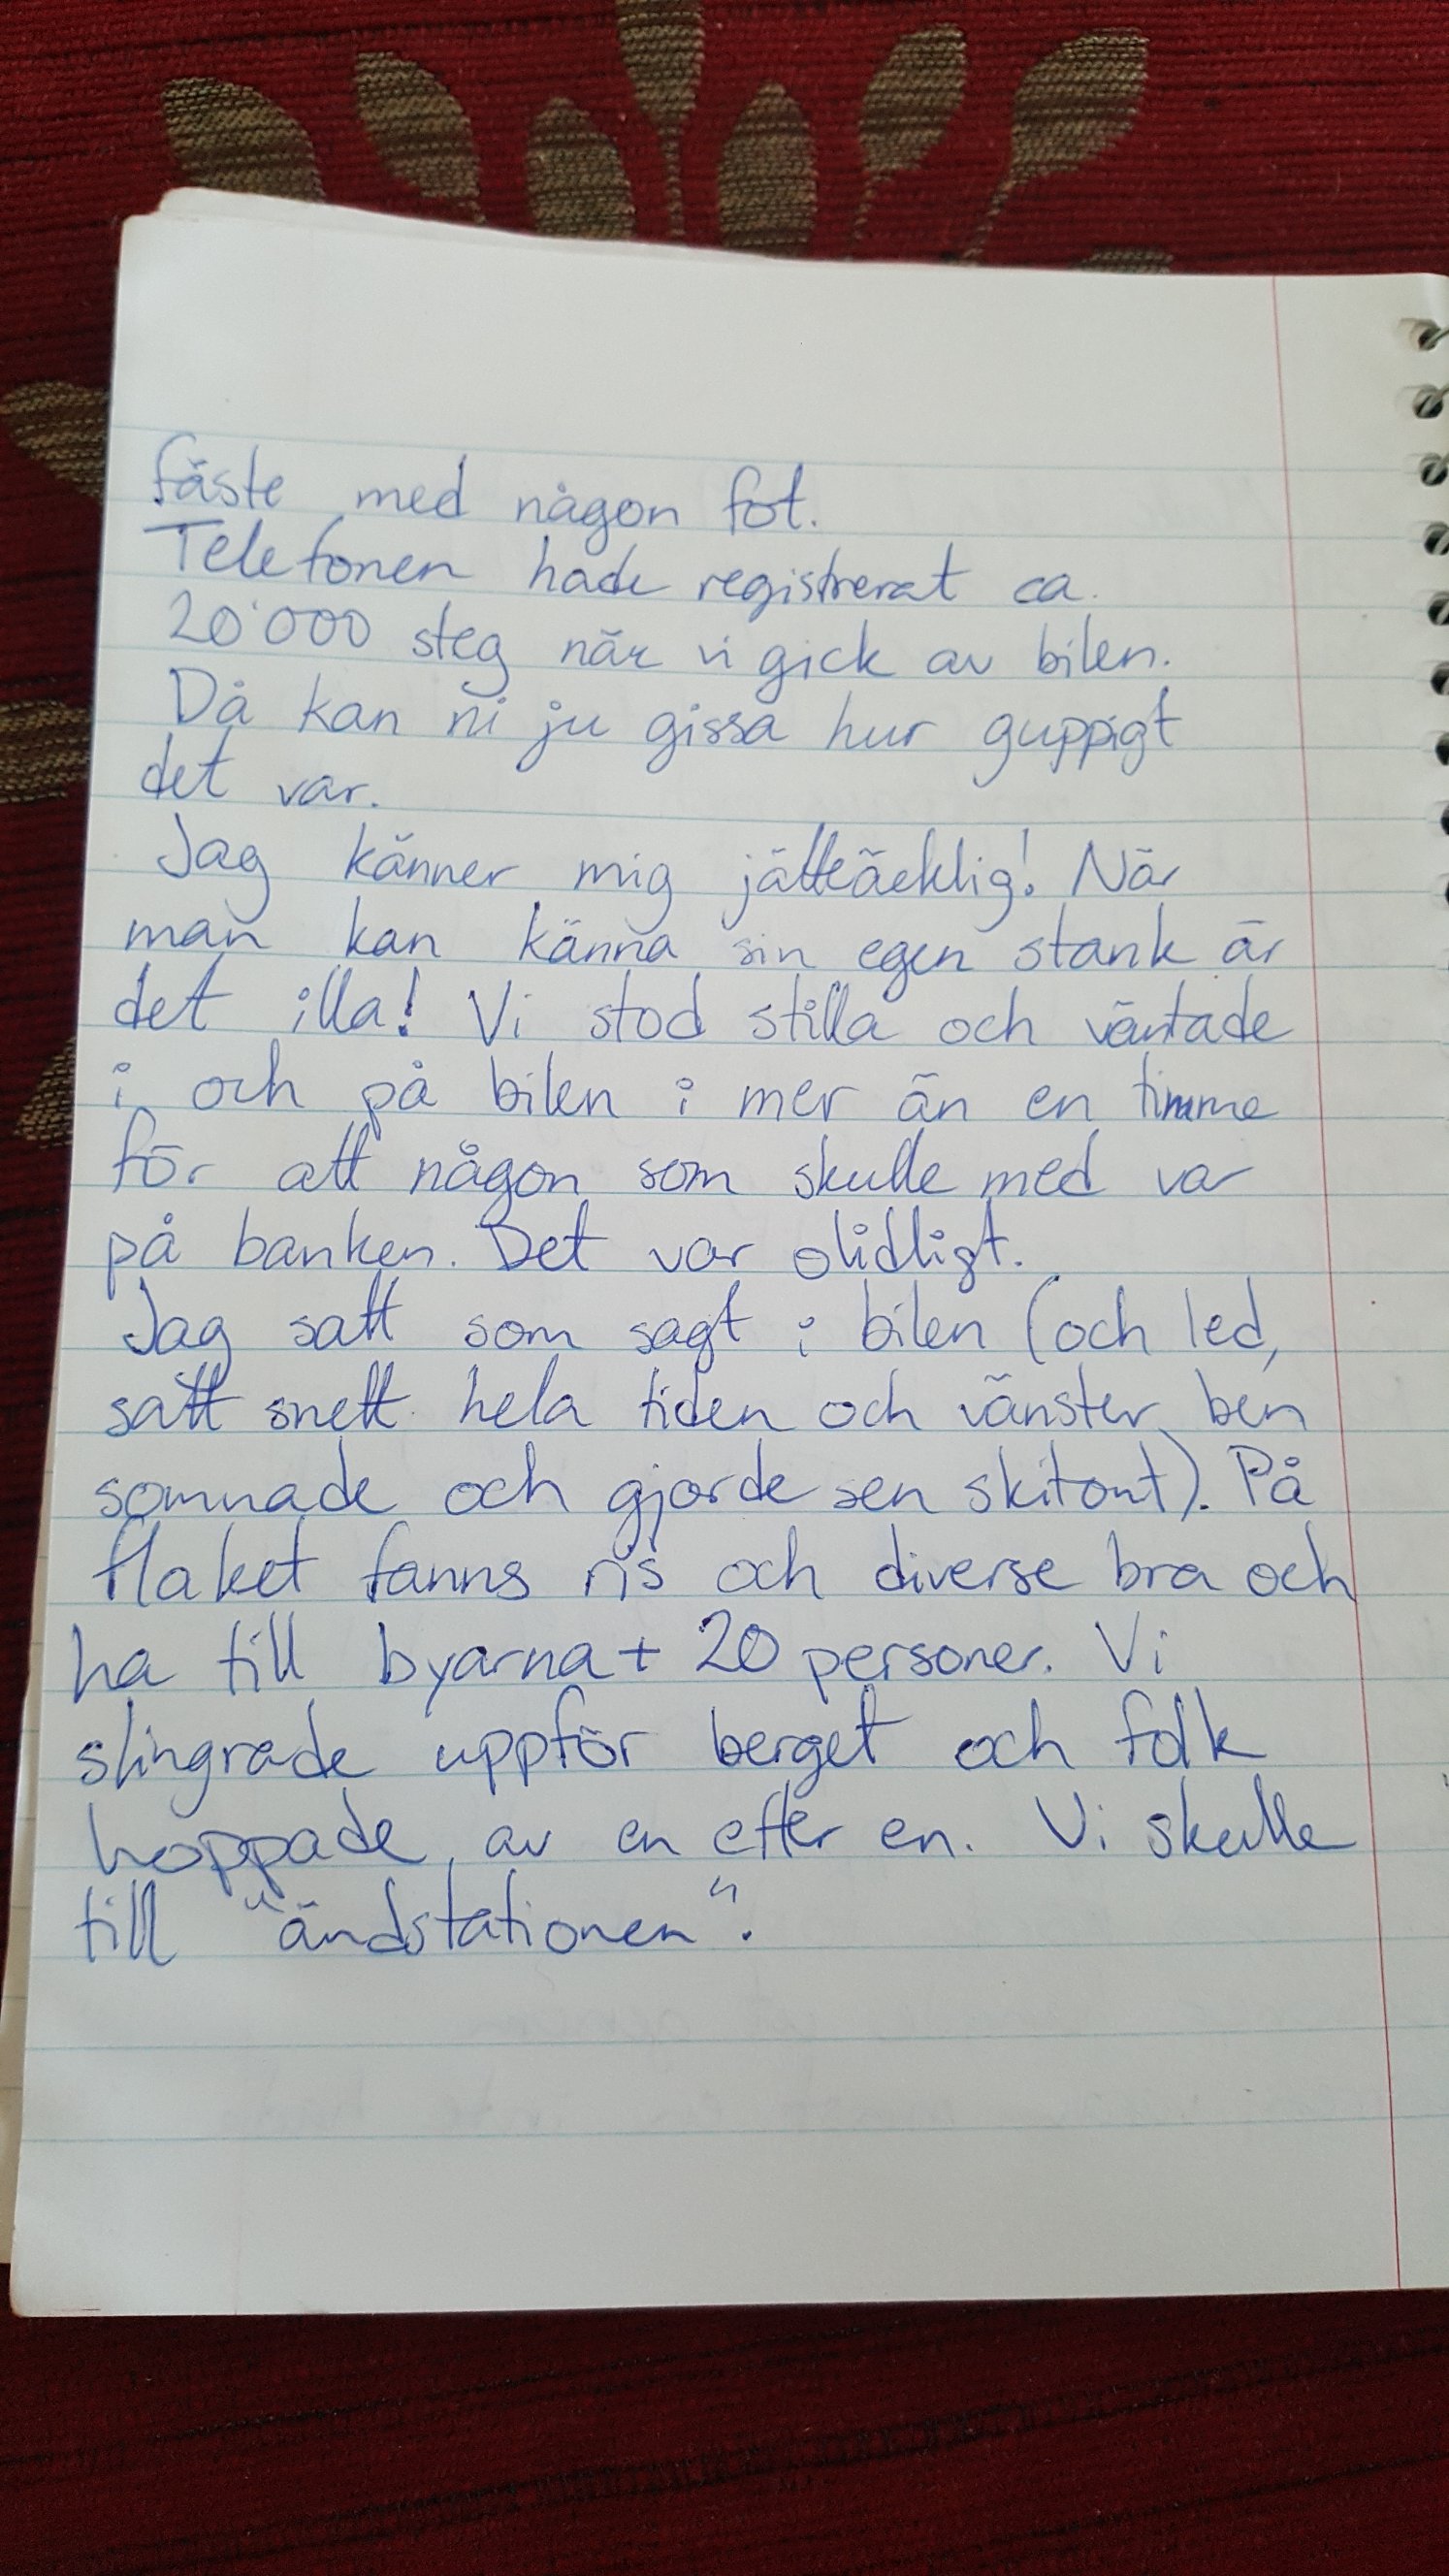 fäste med någon fot.
Telefonen hade registrerat ca.
20'000 steg när vi gick av bilen.
Då kan ni ju gissa hur guppigt
det var.
Jag känner mig jätteäcklig! När
man kan känna sin egen stank är
det illa! Vi stod stilla och väntade
i och på bilen i mer än en timme
för att någon som skulle med var
på banken. Det var olidligt.
Jag satt som sagt i bilen (och led,
satt snett hela tiden och vänster ben
somnade och gjorde sen skitont). På
flaket fanns ris och diverse bra och
ha till byarna + 20 personer. Vi
slingrade uppför berget och folk
hoppade av en efter en. Vi skulle
till "ändstationen".